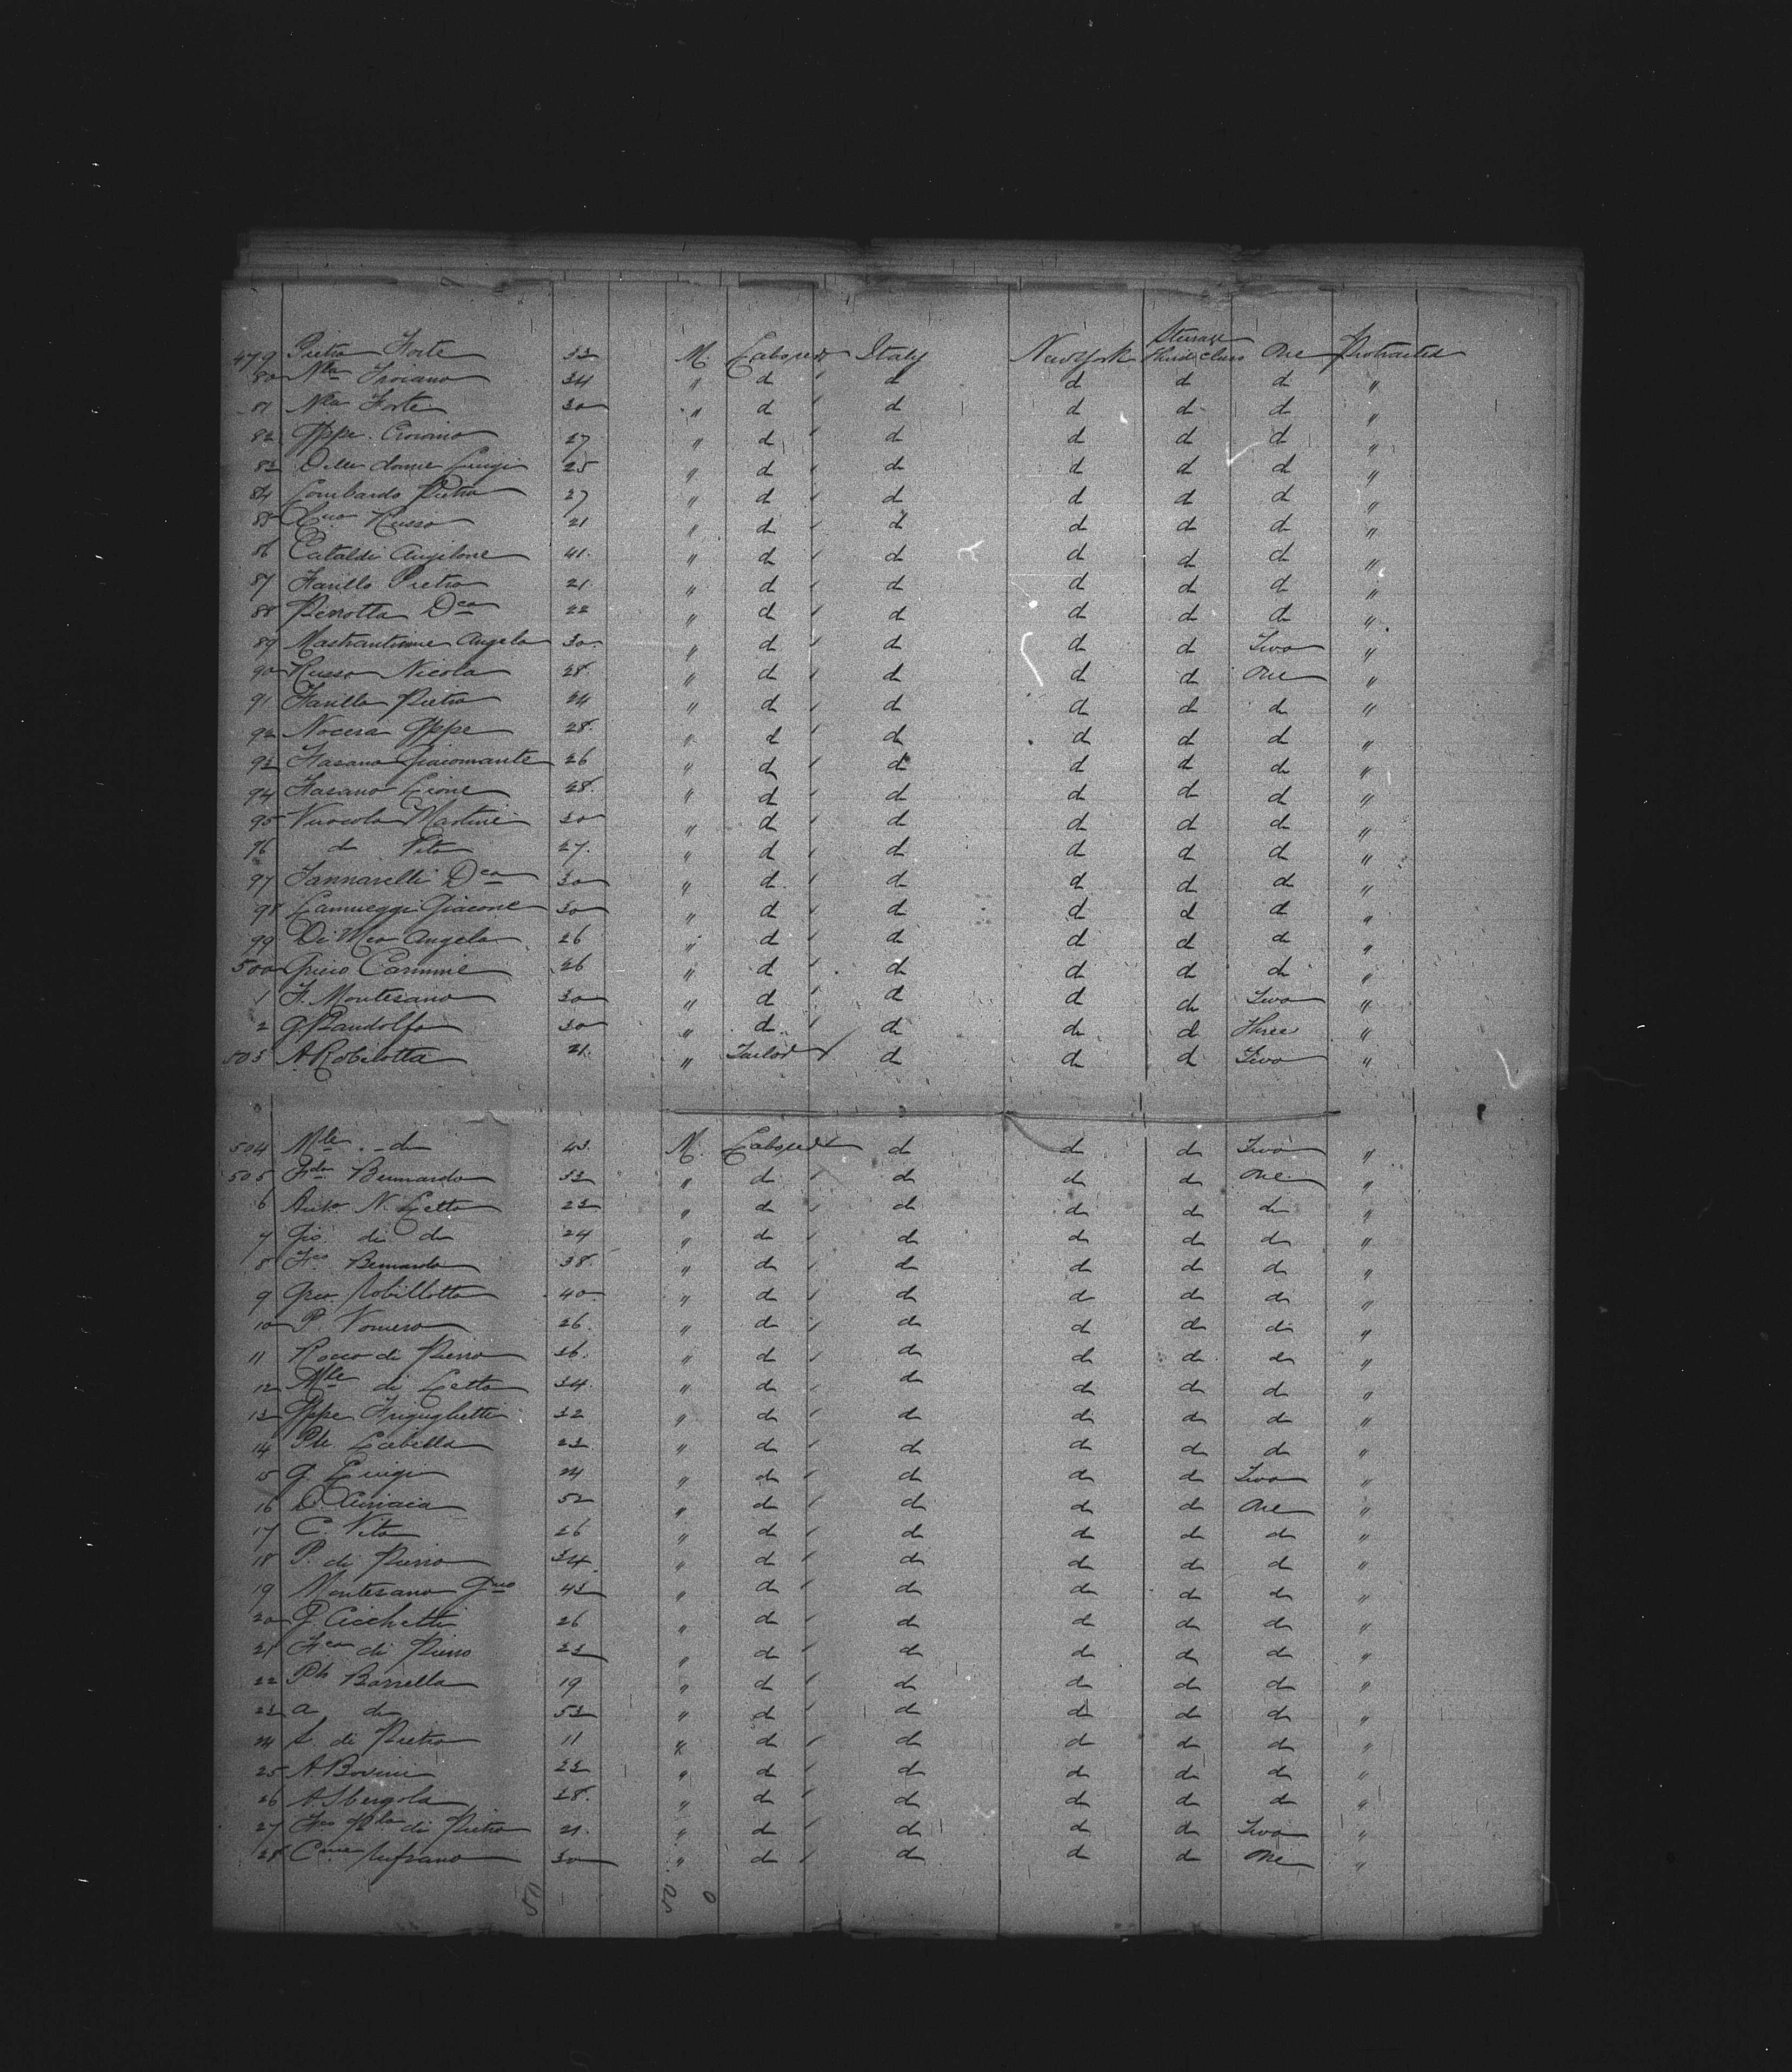 479 Pietro Forte 33 M. Labored Italy New York Steerage Third Class One Protracted
80 Nla Troiano 34 " d d d d d "
81 Nla Forte 30 " d d d d d "
82 Gppe Croiano 27 " d d d d d "
83 Delle donne Luigi 25 " d d d d d "
84 Lombardo Pietro 27 " d d d d d "
85 Russo 21 " d d d d d "
86 Cataldi 41 " d d d d d "
87 Farillo Pietro 21 " d d d d d "
88 Perrotta Dco 22 " d d d d d "
89 Angelo 30 " d d d d Two "
90 Russo Nicola 28 " d d d d One "
91 Farillo Pietro 24 " d d d d d "
92 Nocera Gppe 28 " d d d d d "
93 Fasano Giacomante 26 " d d d d d "
94 Fasano Lione 28 " d d d d d "
95 Martini 30 " d d d d d "
96 do Vito 27 " d d d d d "
97 Iannarelli Dco 30 " d d d d d "
98 Giacone 30 " d d d d d "
99 Di Meo Angelo 26 " d d d d d "
500 Grieco Carmine 26 " d d d d d "
1 F. Montesano 30 " d d d d Two "
2 G. Pandolfo 30 " d d d d Three "
503 A. Robilotta 21 " Tailor d d d Two "
504 Mle do 43 M. Labored d d d Two "
505 Fdo Bernardo 33 " d d d d One "
6 Anto N. Letto 23 " d d d d d "
7 Gio. di do 24 " d d d d d "
8 Fco Bernardo 38 " d d d d d "
9 Robillotta 40 " d d d d d "
10 P. Vomero 26 " d d d d d "
11 Rocco di Pierro 36 " d d d d d "
12 Mle di Letto 34 " d d d d d "
13 Gppe Friguglietti 32 " d d d d d "
14 Labella 23 " d d d d d "
15 G. Luigi 24 " d d d d Two "
16 D. 52 " d d d d One "
17 C. Vito 26 " d d d d d "
18 P. di Pierro 34 " d d d d d "
19 Montesano 43 " d d d d d "
20 G. Cicchetti 26 " d d d d d "
21 Fco di Pierro 23 " d d d d d "
22 Barrella 19 " d d d d d "
23 a do 53 " d d d d d "
24 di Pietro 11 " d d d d d "
25 A. Bovini 23 " d d d d d "
26 A. Sbergola 38 " d d d d d "
27 di Pietro 21 " d d d d Two "
28 Cmne 30 " d d d d One "
50 50 0